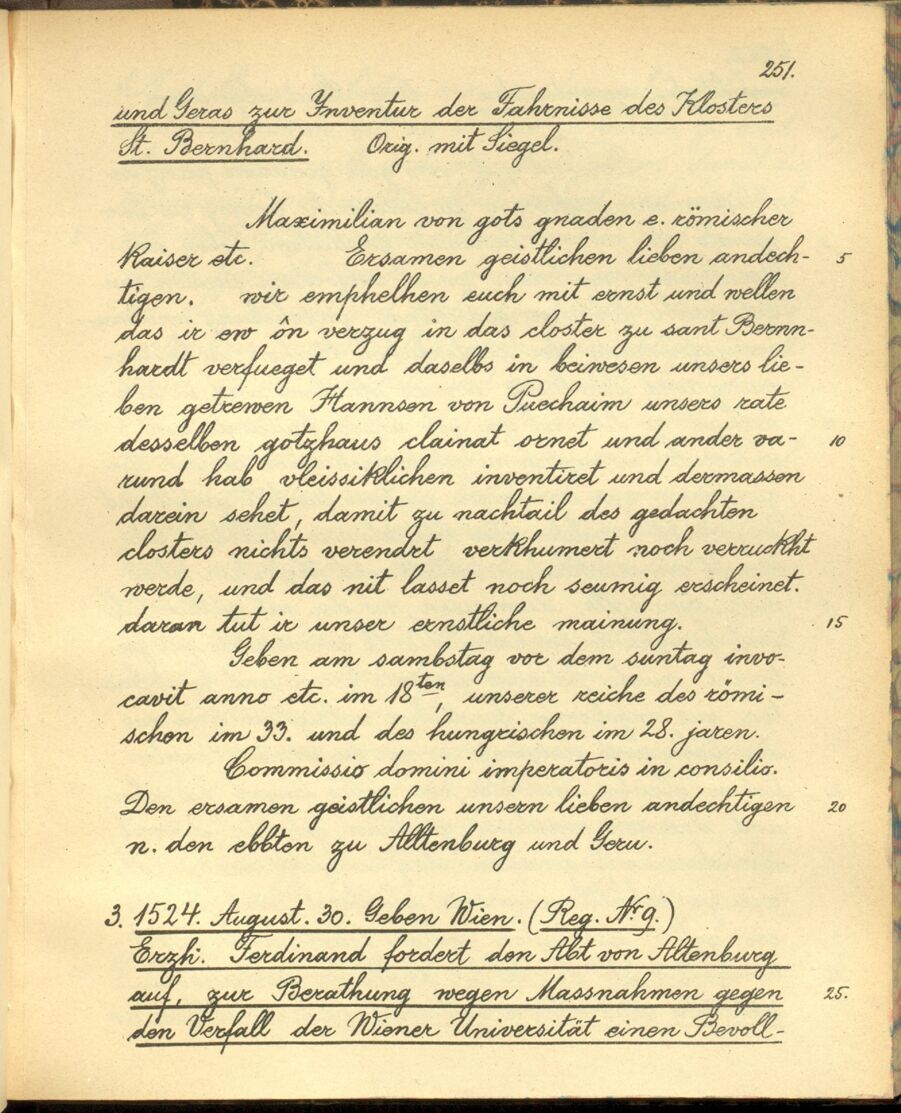 251.
und Geras zur Inventur der Fahrnisse des Klosters
St. Bernhard. Orig. mit Siegel.
Maximilian von gots gnaden e. römischer
Kaiser etc. Ersamen geistlichen lieben andech- 5
tigen. wir emphelhen euch mit ernst und wellen
das ir ew ôn verzug in das closter zu sant Bernn-
hardt verfueget und daselbs in beiwesen unsers lie-
ben getrewen Hannsen von Puechaim unsers rate
desselben gotzhaus clainat ornet und ander va- 10
rund hab vleissiklichen inventiret und dermassen
darein sehet, damit zu nachtail des gedachten
closters nichts verendrt verkhumert noch verruckht
werde, und das nit lasset noch seumig erscheinet.
daran tut ir unser ernstliche mainung. 15
Geben am sambstag vor dem suntag invo-
cavit anno etc. im 18ten, unserer reiche des römi-
schen im 33. und des hungrischen im 28. jaren.
Commissio domini imperatoris in consilio.
Den ersamen geistlichen unsern lieben andechtigen 20
n. den ebbten zu Alltenburg und Geru.
3. 1524. August. 30. Geben Wien. (Reg. Nr 9.)
Erzh. Ferdinand fordert den Abt von Altenburg
auf, zur Berathung wegen Massnahmen gegen 25.
den Verfall der Wiener Universität einen Bevoll-